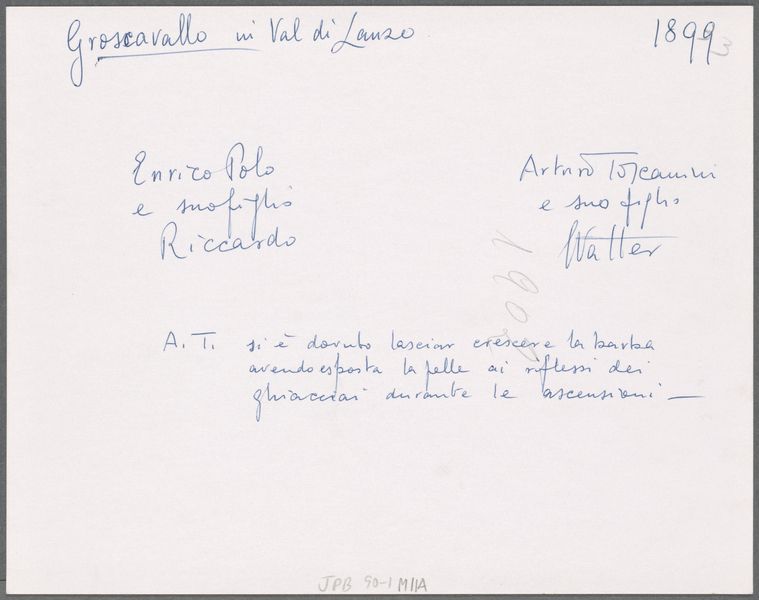 Groscavallo in Val di Lanzo
1899
Enrico Polo
e suo figlio
Riccardo
Arturo Toscanini
e suo figlio
Walter
A. T. si è dovuto lasciar crescere la barba
avendo esposta la pelle ai riflessi dei
ghiacciai durante le ascensioni —
JPB 90-1 M11A